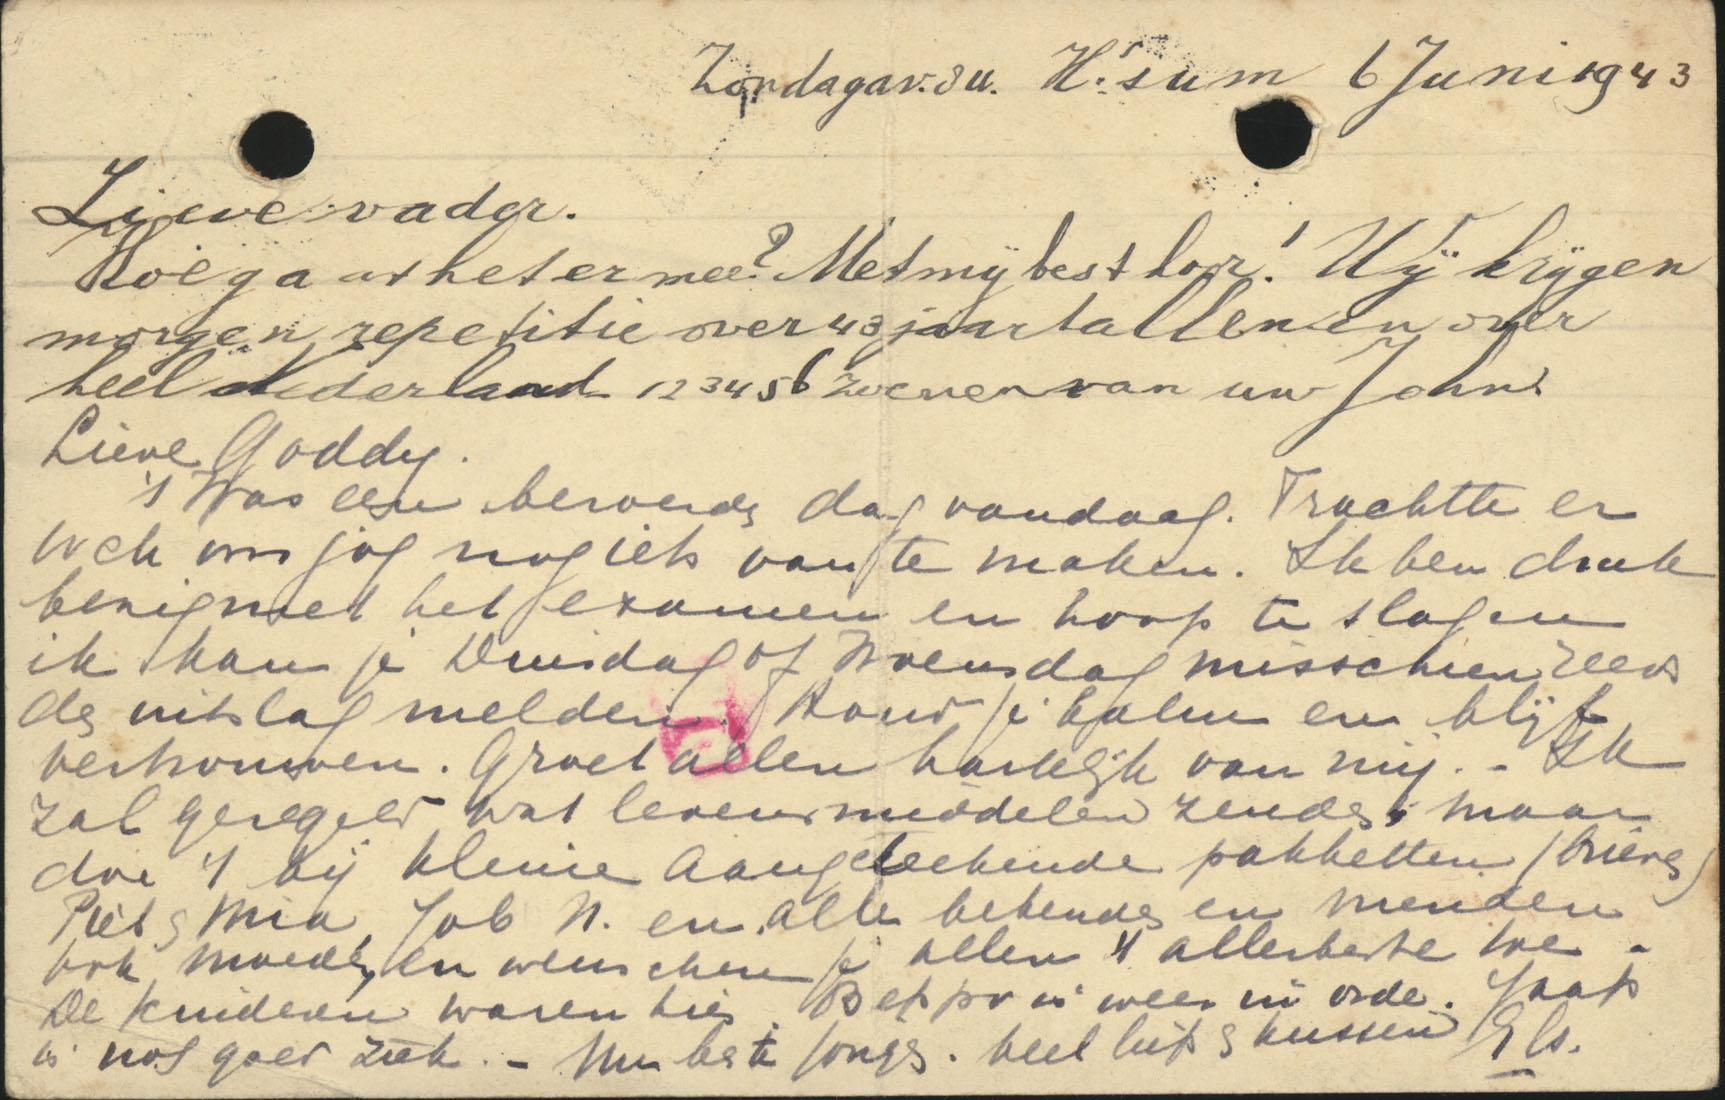 Zondagav. 8 u. H.'sum 6 Juni 1943
Lieve vader.
Hoe gaat het er mee? Met mij best hoor! Wij krijgen
morgen repetitie over 43 jaartallen en over
heel Nederland 123456 zoenen van uw John
Lieve Goddy.
't Was een beroerde dag vandaag. Trachtte er
toch om jog nog iets van te maken. Ik ben druk
bezig met het examen en hoop te slagen
ik kan je Dinsdag of Woensdag misschien reeds
de uitslag melden. Houd je kalm en blijf
vertrouwen. Groet allen hartelijk van mij. - Ik
zal geregeld wat levensmiddelen zenden maar
doe 't bij kleine aangeteekende pakketten (brieve)
Piet & Mia, Job N. en alle bekende en vrienden
ook moeder, en wenschen je allen 't allerbeste toe -
De kinderen waren hier. Beppo is weer in orde. Jaap
is nog goed ziek. - Nu beste jongs. heel lief & kussen Els.